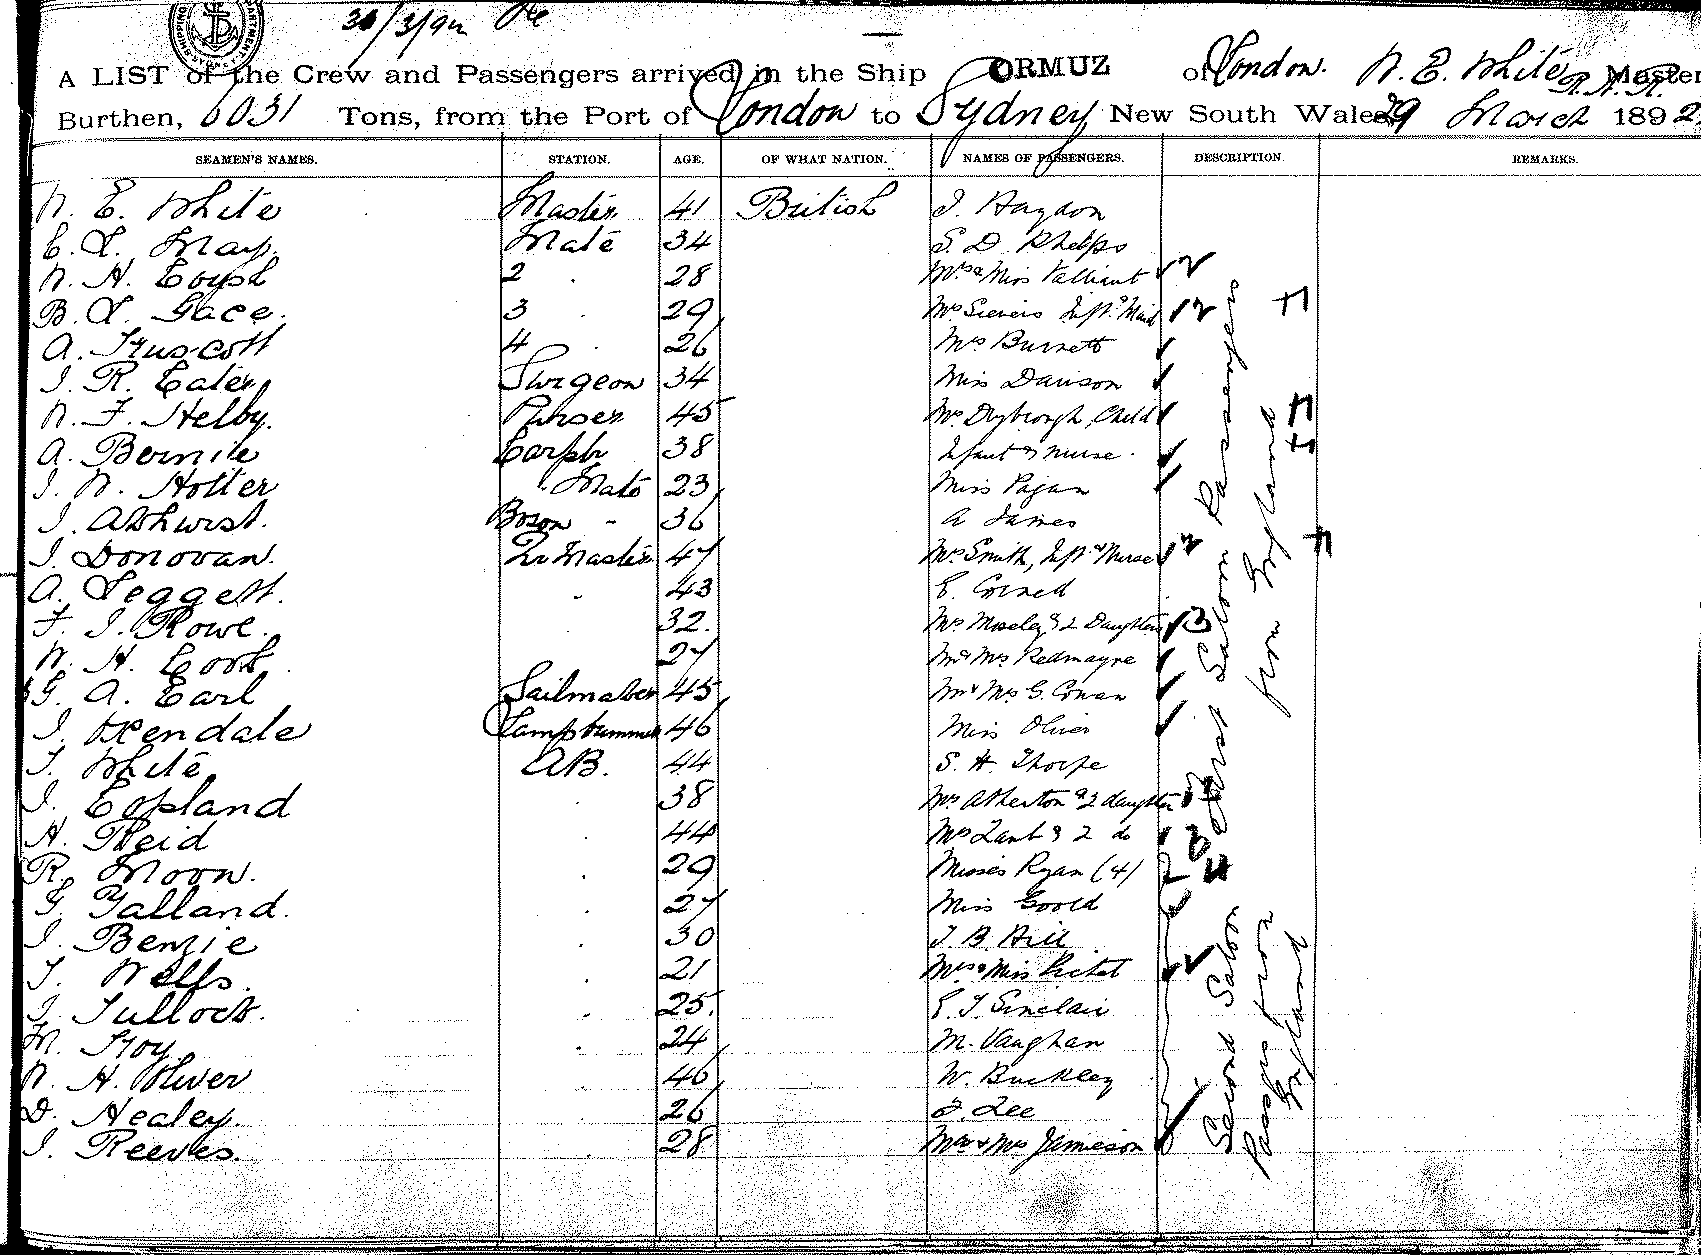 30/3/92
A LIST of the Crew and Passengers arrived in the Ship ORMUZ of London. W. E. White R.N.R. Master
Burthen, 6031 Tons, from the Port of London to Sydney New South Wales, 29 March 1892
SEAMEN'S NAMES. STATION. AGE. OF WHAT NATION. NAMES OF PASSENGERS. DESCRIPTION. REMARKS.
W. E. White Master 41 British J. Haydon
C. L. May. Mate 34 S. D. Phelps
W. H. 2 28 Mrs & Miss Valliant 2
B. L. Gace. 3 29 Mrs Sievers Inft & Maid 2
A. Truscott 4 26 Mrs Burnett
J. R. Eater Surgeon 34 Miss Davison
W. F. Helby. Purser 45 Mrs Drybrough, Child
A. Bernie Carptr 38 Infant & Nurse
J. W. Hotter Mate 23 Miss Pagan
J. Ashurst. Bosen 36 A James
J. Donovan. Qr Master 47 Mrs Smith, Inft & Nurse 2
A. Leggett. 43 E. Cornell
F. J. Rowe. 32. Mrs Moseley & 2 Daughters 3
W. H. Cook 27 Mr & Mrs Redmayne
G. A. Earl Sailmaker 45 Mr & Mrs G. Cowan
J. Oxendale Lamptrimmer 46 Miss Oliver
T. White AB. 44 S. H. Thorpe
J. Copland 38 Mrs Atherton & 2 daughters
H. Reid 44 Mrs Zant & 2 do 3
R. Moon. 29 Misses Ryan (4) 4
G. Yalland. 27 Miss Goold
J. Benzie 30 J. B. Hill
T. Wells. 21 Mrs & Miss Pichet
J. Tullock. 25. E. T. Sinclair
M. Troy. 24 M. Vaughan
W. H. Oliver 46 W. Buckley
D. Healey. 26 J. Lee
J. Reeves. 28 Mr & Mrs Jamieson
First Saloon Passengers
from England
Second Saloon
Passgrs from
England